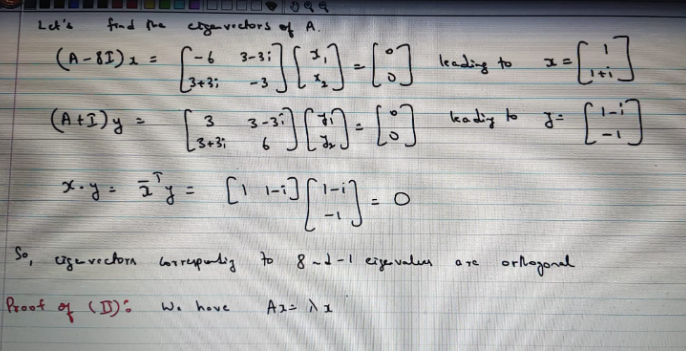 Let's find the eigenvectors of A.
(A-8I)x = [-6 3-3i; 3+3i -3] [x₁; x₂] = [0; 0] leading to x = [1; 1+i]
(A+I)y = [3 3-3i; 3+3i 6] [y₁; y₂] = [0; 0] leading to y = [1-i; -1]
x·y = x̄ᵀy = [1 1-i] [1-i; -1] = 0
So, eigenvectors corresponding to 8 and -1 eigenvalues are orthogonal
Proof of (II): We have Ax = λx